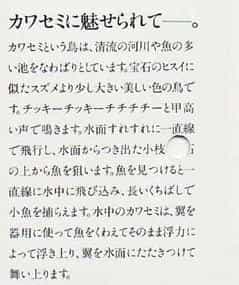 カワセミに魅せられて――。
カワセミという鳥は、清流の河川や魚の多
い池をなわばりとしています。宝石のヒスイに
似たスズメより少し大きい美しい色の鳥で
す。チッキーチッキーチチチチーと甲高
い声で鳴きます。水面すれすれに一直線
で飛行し、水面からつき出た小枝
の上から魚を狙います。魚を見つけると一
直線に水中に飛び込み、長いくちばしで
小魚を捕らえます。水中のカワセミは、翼を
器用に使って魚をくわえてそのまま浮力に
よって浮き上り、翼を水面にたたきつけて
舞い上ります。